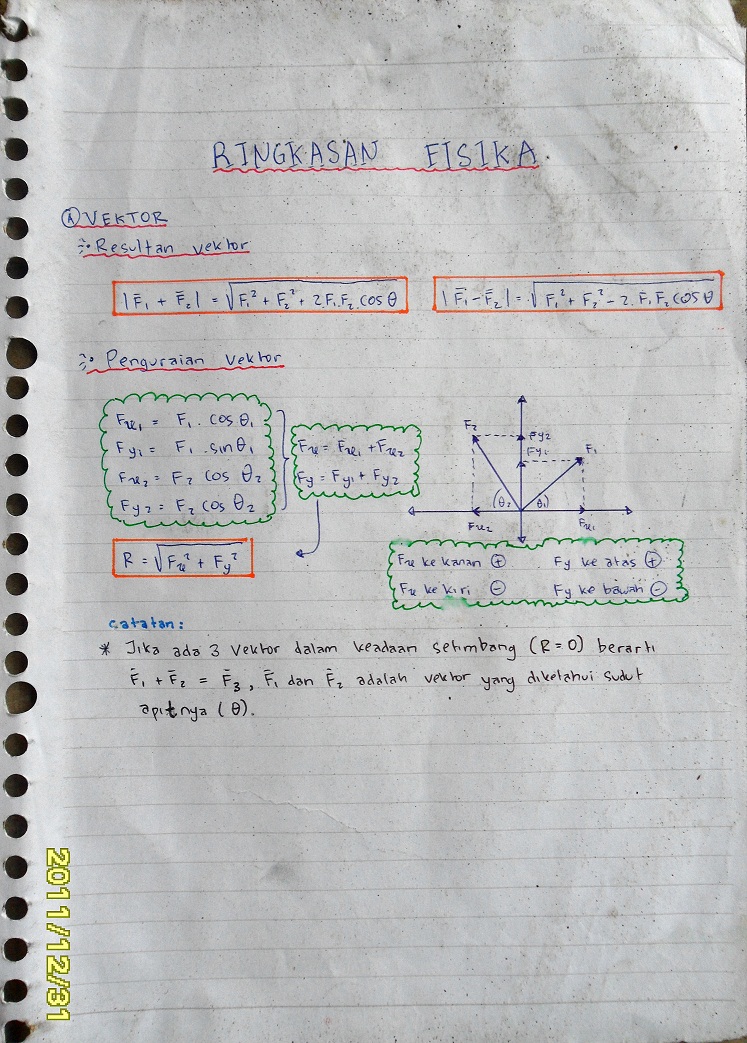 Date
RINGKASAN FISIKA
Ⓐ VEKTOR
Resultan vektor
|F̄₁ + F̄₂| = √F₁² + F₂² + 2F₁.F₂.cos θ
|F̄₁ - F̄₂| = √F₁² + F₂² - 2.F₁.F₂ cos θ
Penguraian vektor
Fx₁ = F₁ . cos θ₁
Fy₁ = F₁ . sin θ₁
Fx₂ = F₂ cos θ₂
Fy₂ = F₂ cos θ₂
Fx = Fx₁ + Fx₂
Fy = Fy₁ + Fy₂
F₂
Fy₂
Fy₁
F₁
θ₂ θ₁
Fx₂ Fx₁
R = √Fx² + Fy²
Fx ke kanan ⊕ Fy ke atas ⊕
Fx ke kiri ⊖ Fy ke bawah ⊖
catatan:
* Jika ada 3 vektor dalam keadaan setimbang (R = 0) berarti
F̄₁ + F̄₂ = F̄₃, F̄₁ dan F̄₂ adalah vektor yang diketahui sudut
apitnya (θ).
2011/12/31